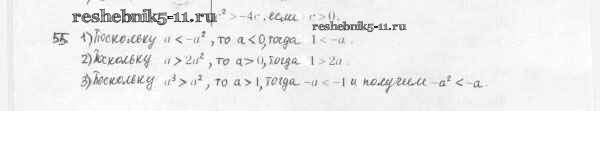 reshebnik5-11.ru ² > -4c, если c > 0.
reshebnik5-11.ru
55 1) Поскольку a < -a², то a < 0, тогда 1 < -a.
2) Поскольку a > 2a², то a > 0, тогда 1 > 2a.
3) Поскольку a³ > a², то a > 1, тогда -a < -1 и получим -a² < -a.